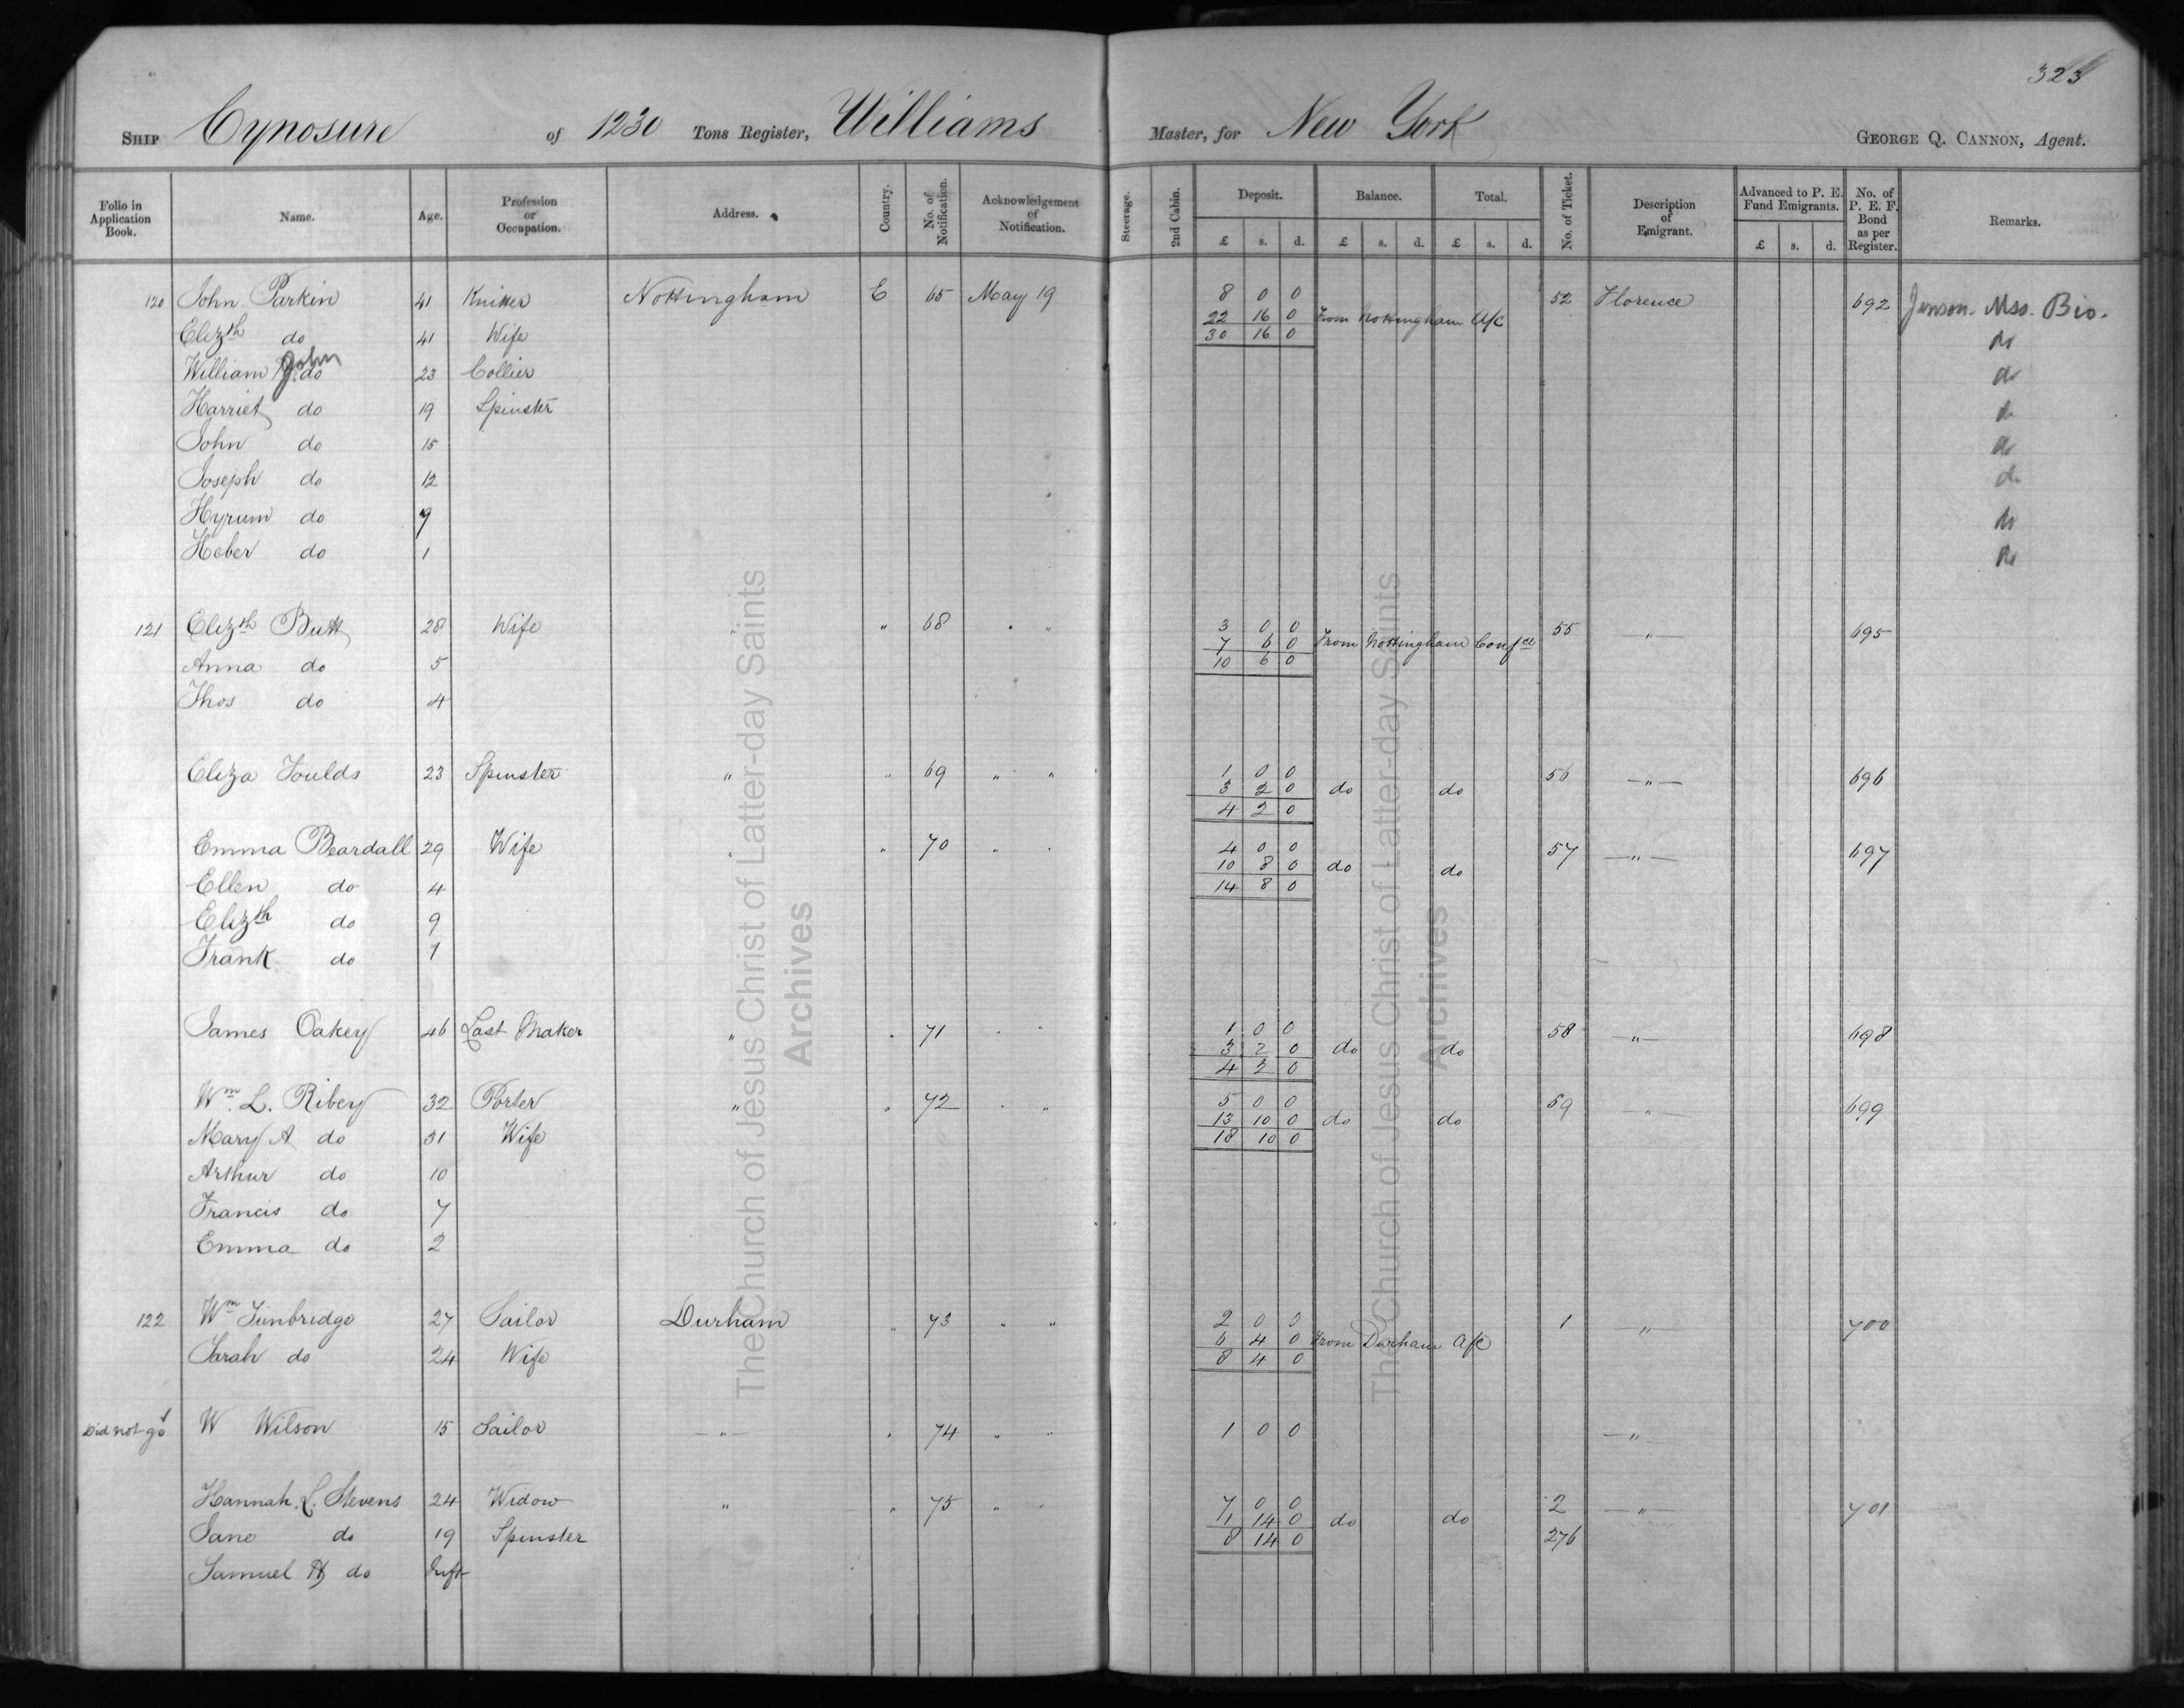 323
SHIP Cynosure of 1230 Tons Register, Williams Master, for New York GEORGE Q. CANNON, Agent.
Folio in Application Book. Name. Age. Profession or Occupation. Address. Country. No. of Notification. Acknowledgement of Notification. Steerage. 2nd Cabin. Deposit. Balance. Total. No. of Ticket. Description of Emigrant. Advanced to P. E. Fund Emigrants. No. of P. E. F. Bond as per Register. Remarks.
£ s. d. £ s. d. £ s. d. £ s. d.
120 John Parkin 41 Knitter Nottingham E 65 May 19 8 0 0 52 Florence 692 Jenson. Mss. Bio.
22 16 0 From Nottingham A/c
Elizth do 41 Wife 30 16 0 do
William John do 23 Collier do
Harriet do 19 Spinster do
John do 15 do
Joseph do 12 do
Hyrum do 9 do
Heber do 1 do
121 Elizth Butt 28 Wife " " 68 " " 3 0 0 55 " 695
7 6 0 From Nottingham Confce
Anna do 5 10 6 0
Thos do 4
Eliza Foulds 23 Spinster " " 69 " " 1 0 0 56 " 696
3 2 0 do do
4 2 0
Emma Beardall 29 Wife " " 70 " " 4 0 0 57 " 697
10 8 0 do do
Ellen do 4 14 8 0
Elizth do 9
Frank do 1
James Oakey 46 Last Maker " " 71 " " 1 0 0 58 " 698
3 2 0 do do
4 2 0
Wm. L. Ribey 32 Porter " " 72 " " 5 0 0 59 " 699
13 10 0 do do
Mary A do 31 Wife 18 10 0
Arthur do 10
Francis do 7
Emma do 2
122 Wm Tunbridge 27 Sailor Durham " 73 " " 2 0 0 1 " 700
6 4 0 From Durham A/c
Sarah do 24 Wife 8 4 0
Did not go W Wilson 15 Sailor " " 74 " " 1 0 0 "
Hannah L. Stevens 24 Widow " " 75 " " 7 0 0 2 " 701
1 14 0 do do
Jane do 19 Spinster 8 14 0 276
Samuel H do Inft
The Church of Jesus Christ of Latter-day Saints
Archives
The Church of Jesus Christ of Latter-day Saints
Archives